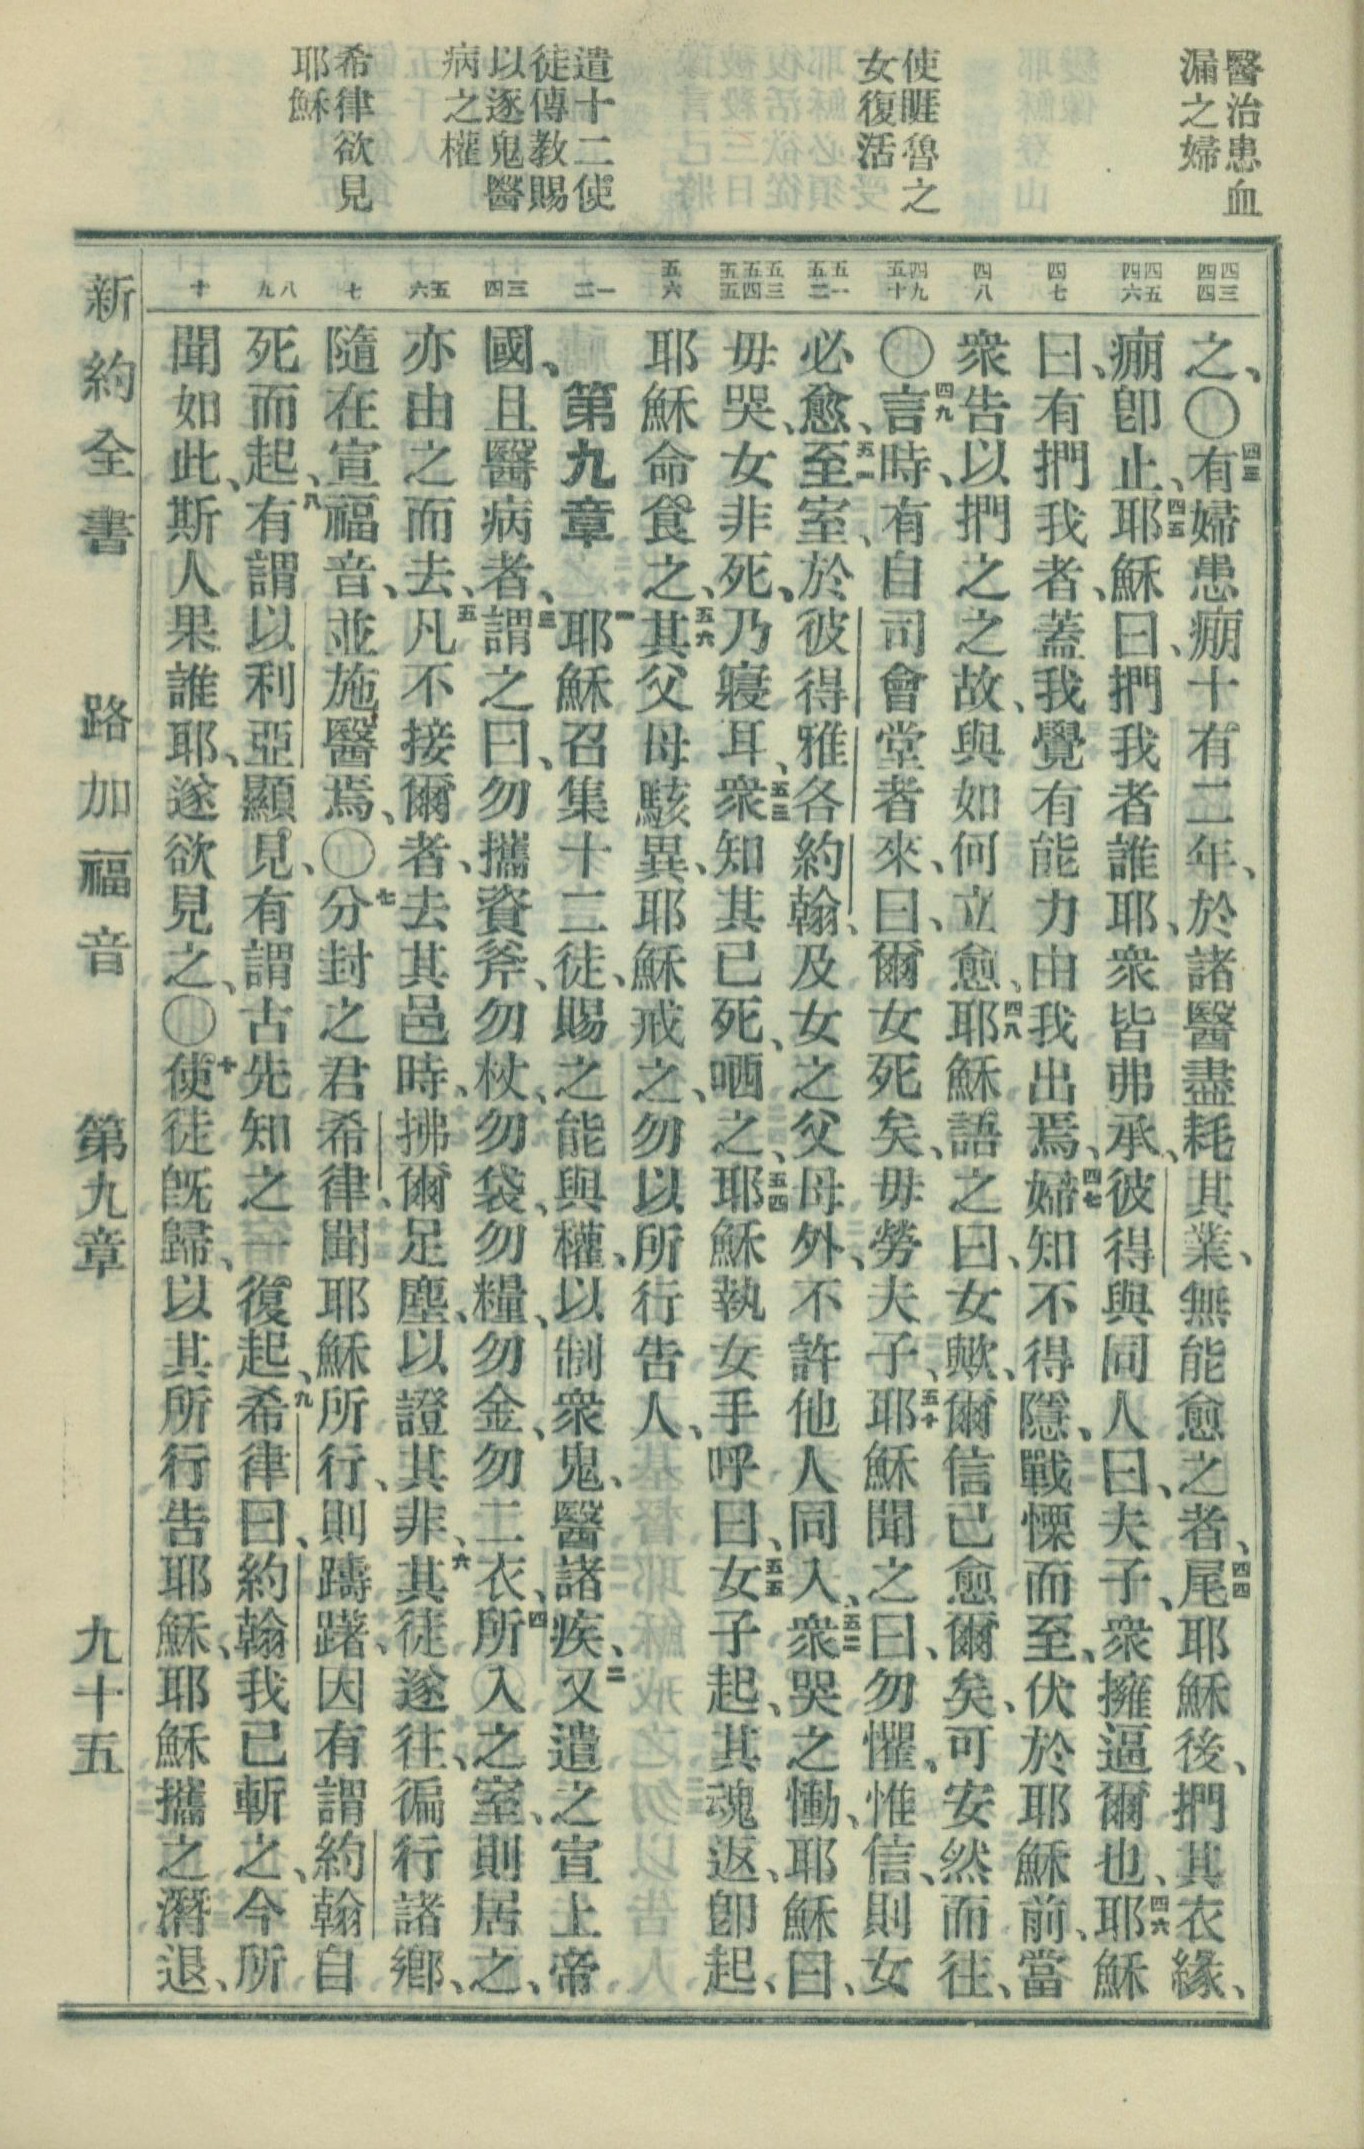 醫治患血
漏之婦
使睚魯之
女復活
遣十二使
徒傳教賜
以逐鬼醫
病之權
希律欲見
耶穌
四三
四四
四五
四六
四七
四八
四九
五十
五一
五二
五三
五四
五五
五六
一
二
三
四
五
六
七
八
九
十
之、〇四三有婦患痭十有二年、於諸醫盡耗其業、無能愈之者、四四尾耶穌後、捫其衣緣、
痭卽止、四五耶穌曰、捫我者誰耶、衆皆弗承、彼得與同人曰、夫子、衆擁逼爾也、四六耶穌
曰、有捫我者、蓋我覺有能力由我出焉、四七婦知不得隱、戰慄而至、伏於耶穌前、當
衆告以捫之之故、與如何立愈、四八耶穌語之曰、女歟、爾信已愈爾矣、可安然而往、
〇四九言時、有自司會堂者來、曰、爾女死矣、毋勞夫子、五十耶穌聞之曰、勿懼、惟信、則女
必愈、五一至室、於彼得雅各約翰、及女之父母外、不許他人同入、五二衆哭之慟、耶穌曰、
毋哭、女非死、乃寢耳、五三衆知其已死、哂之、五四耶穌執女手呼曰、女五五子起、其魂返、卽起、
耶穌命食之、五六其父母駭異、耶穌戒之、勿以所行告人、
第九章 一耶穌召集十二徒、賜之能與權、以制衆鬼、醫諸疾、二又遣之宣上帝
國、且醫病者、三謂之曰、勿攜資斧、勿杖、勿袋、勿糧、勿金、勿二衣、四所入之室、則居之、
亦由之而去、五凡不接爾者、去其邑時、拂爾足塵、以證其非、六其徒遂往、徧行諸鄉、
隨在宣福音、並施醫焉、〇七分封之君希律、聞耶穌所行、則躊躇、因有謂約翰自
死而起、八有謂以利亞顯見、有謂古先知之一復起、九希律曰、約翰我已斬之、今所
聞如此、斯人果誰耶、遂欲見之、〇十使徒旣歸、以其所行告耶穌、耶穌攜之潛退、
新約全書 路加福音 第九章 九十五